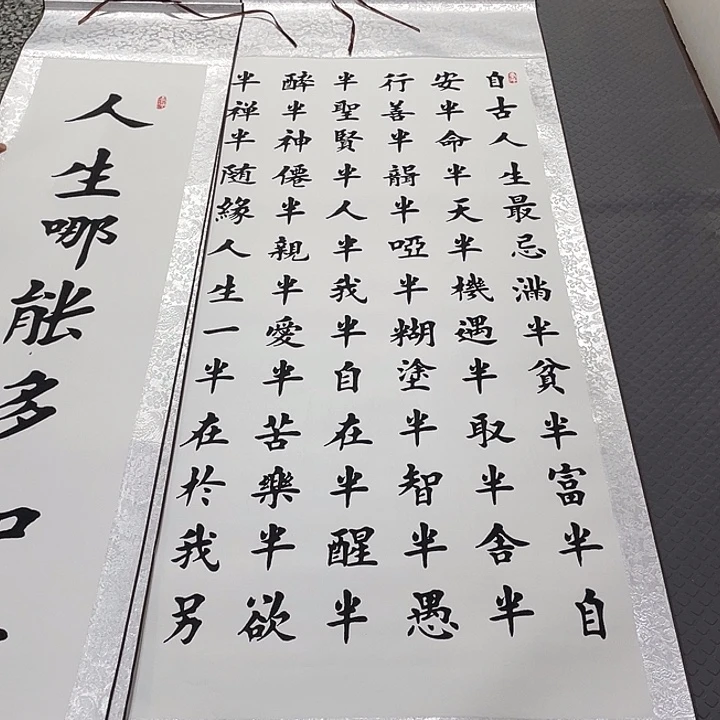 自古人生最忌滿半貧半富半自
安半命半天半機遇半取半舍半
行善半半啞半糊塗半智半愚
半聖賢半人半我半自在半醒半
醉半神僊半親半愛半苦樂半欲
半禅半随緣人生一半在於我另
人生哪能多